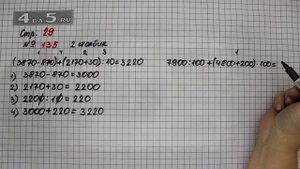 4da5.ru
Стр. 29
№ 135 2 столбик
1 4 2 3
(3870-870)+(2170+30):10=3220
1
7900:100+(4800+200):100=
1) 3870-870=3000
2) 2170+30=2200
3) 2200:10=220
4) 3000+220=3220